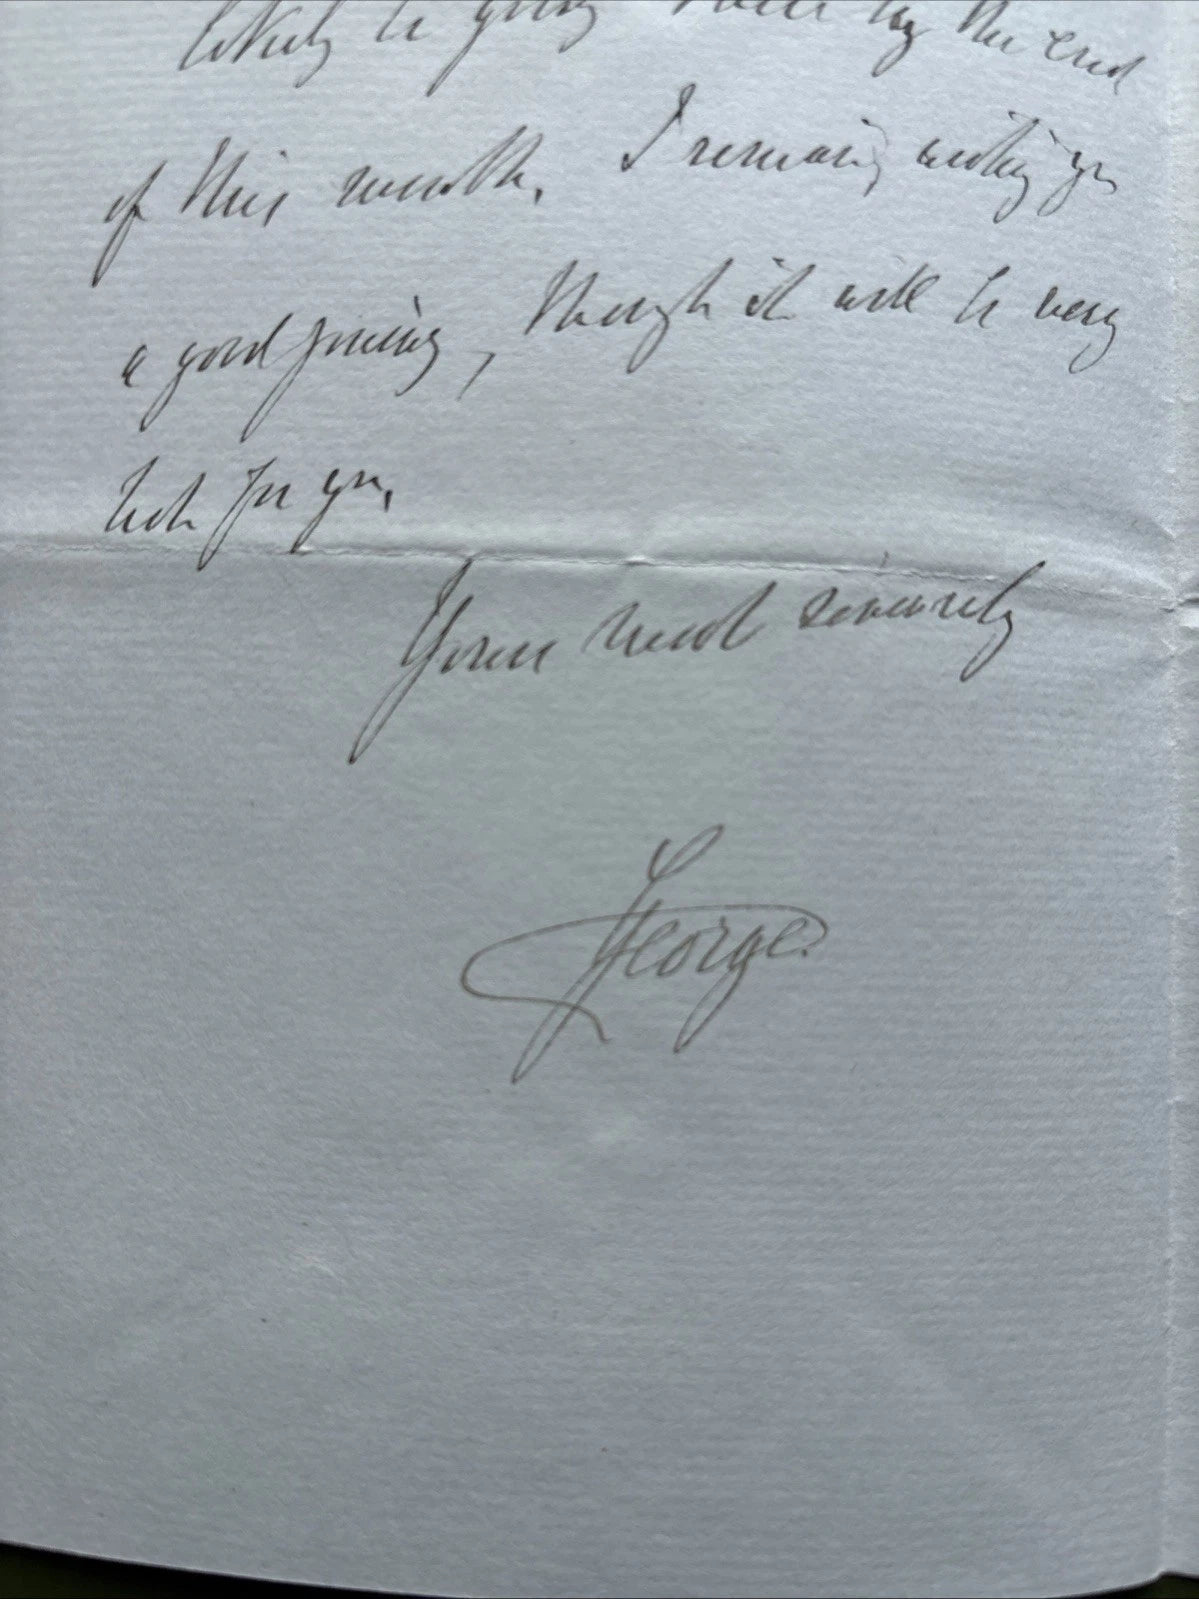 likely to going there by the end
of this month. I remain, wishing you
a good journey, though it will be very
hot for you.
Yours most sincerely
George.